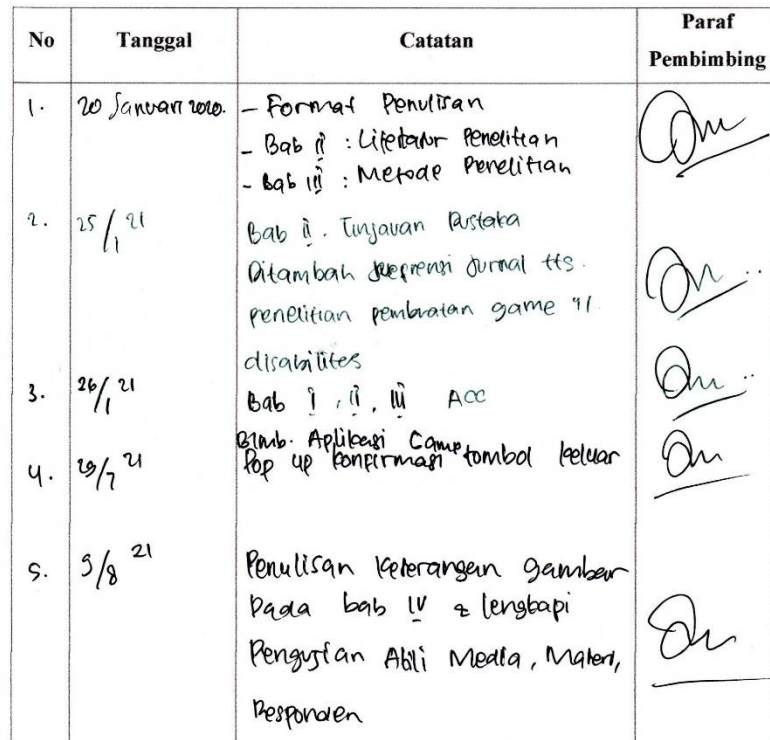 No Tanggal Catatan Paraf Pembimbing
1. 20 Januari 2020. - Format Penulisan
- Bab II : Literatur Penelitian
- Bab III : Metode Penelitian
2. 25/1 21 Bab II. Tinjauan Pustaka
Ditambah jurnal tts.
penelitian pembuatan game
disabilites
3. 26/1 21 Bab I, II, III ACC
Bimb. Aplikasi
4. 29/7 21 Pop up konfirmasi tombol keluar
5. 5/8 21 Penulisan keterangan gambar
Pada bab IV & lengkapi
Pengujian Ahli Media, Materi,
Responden